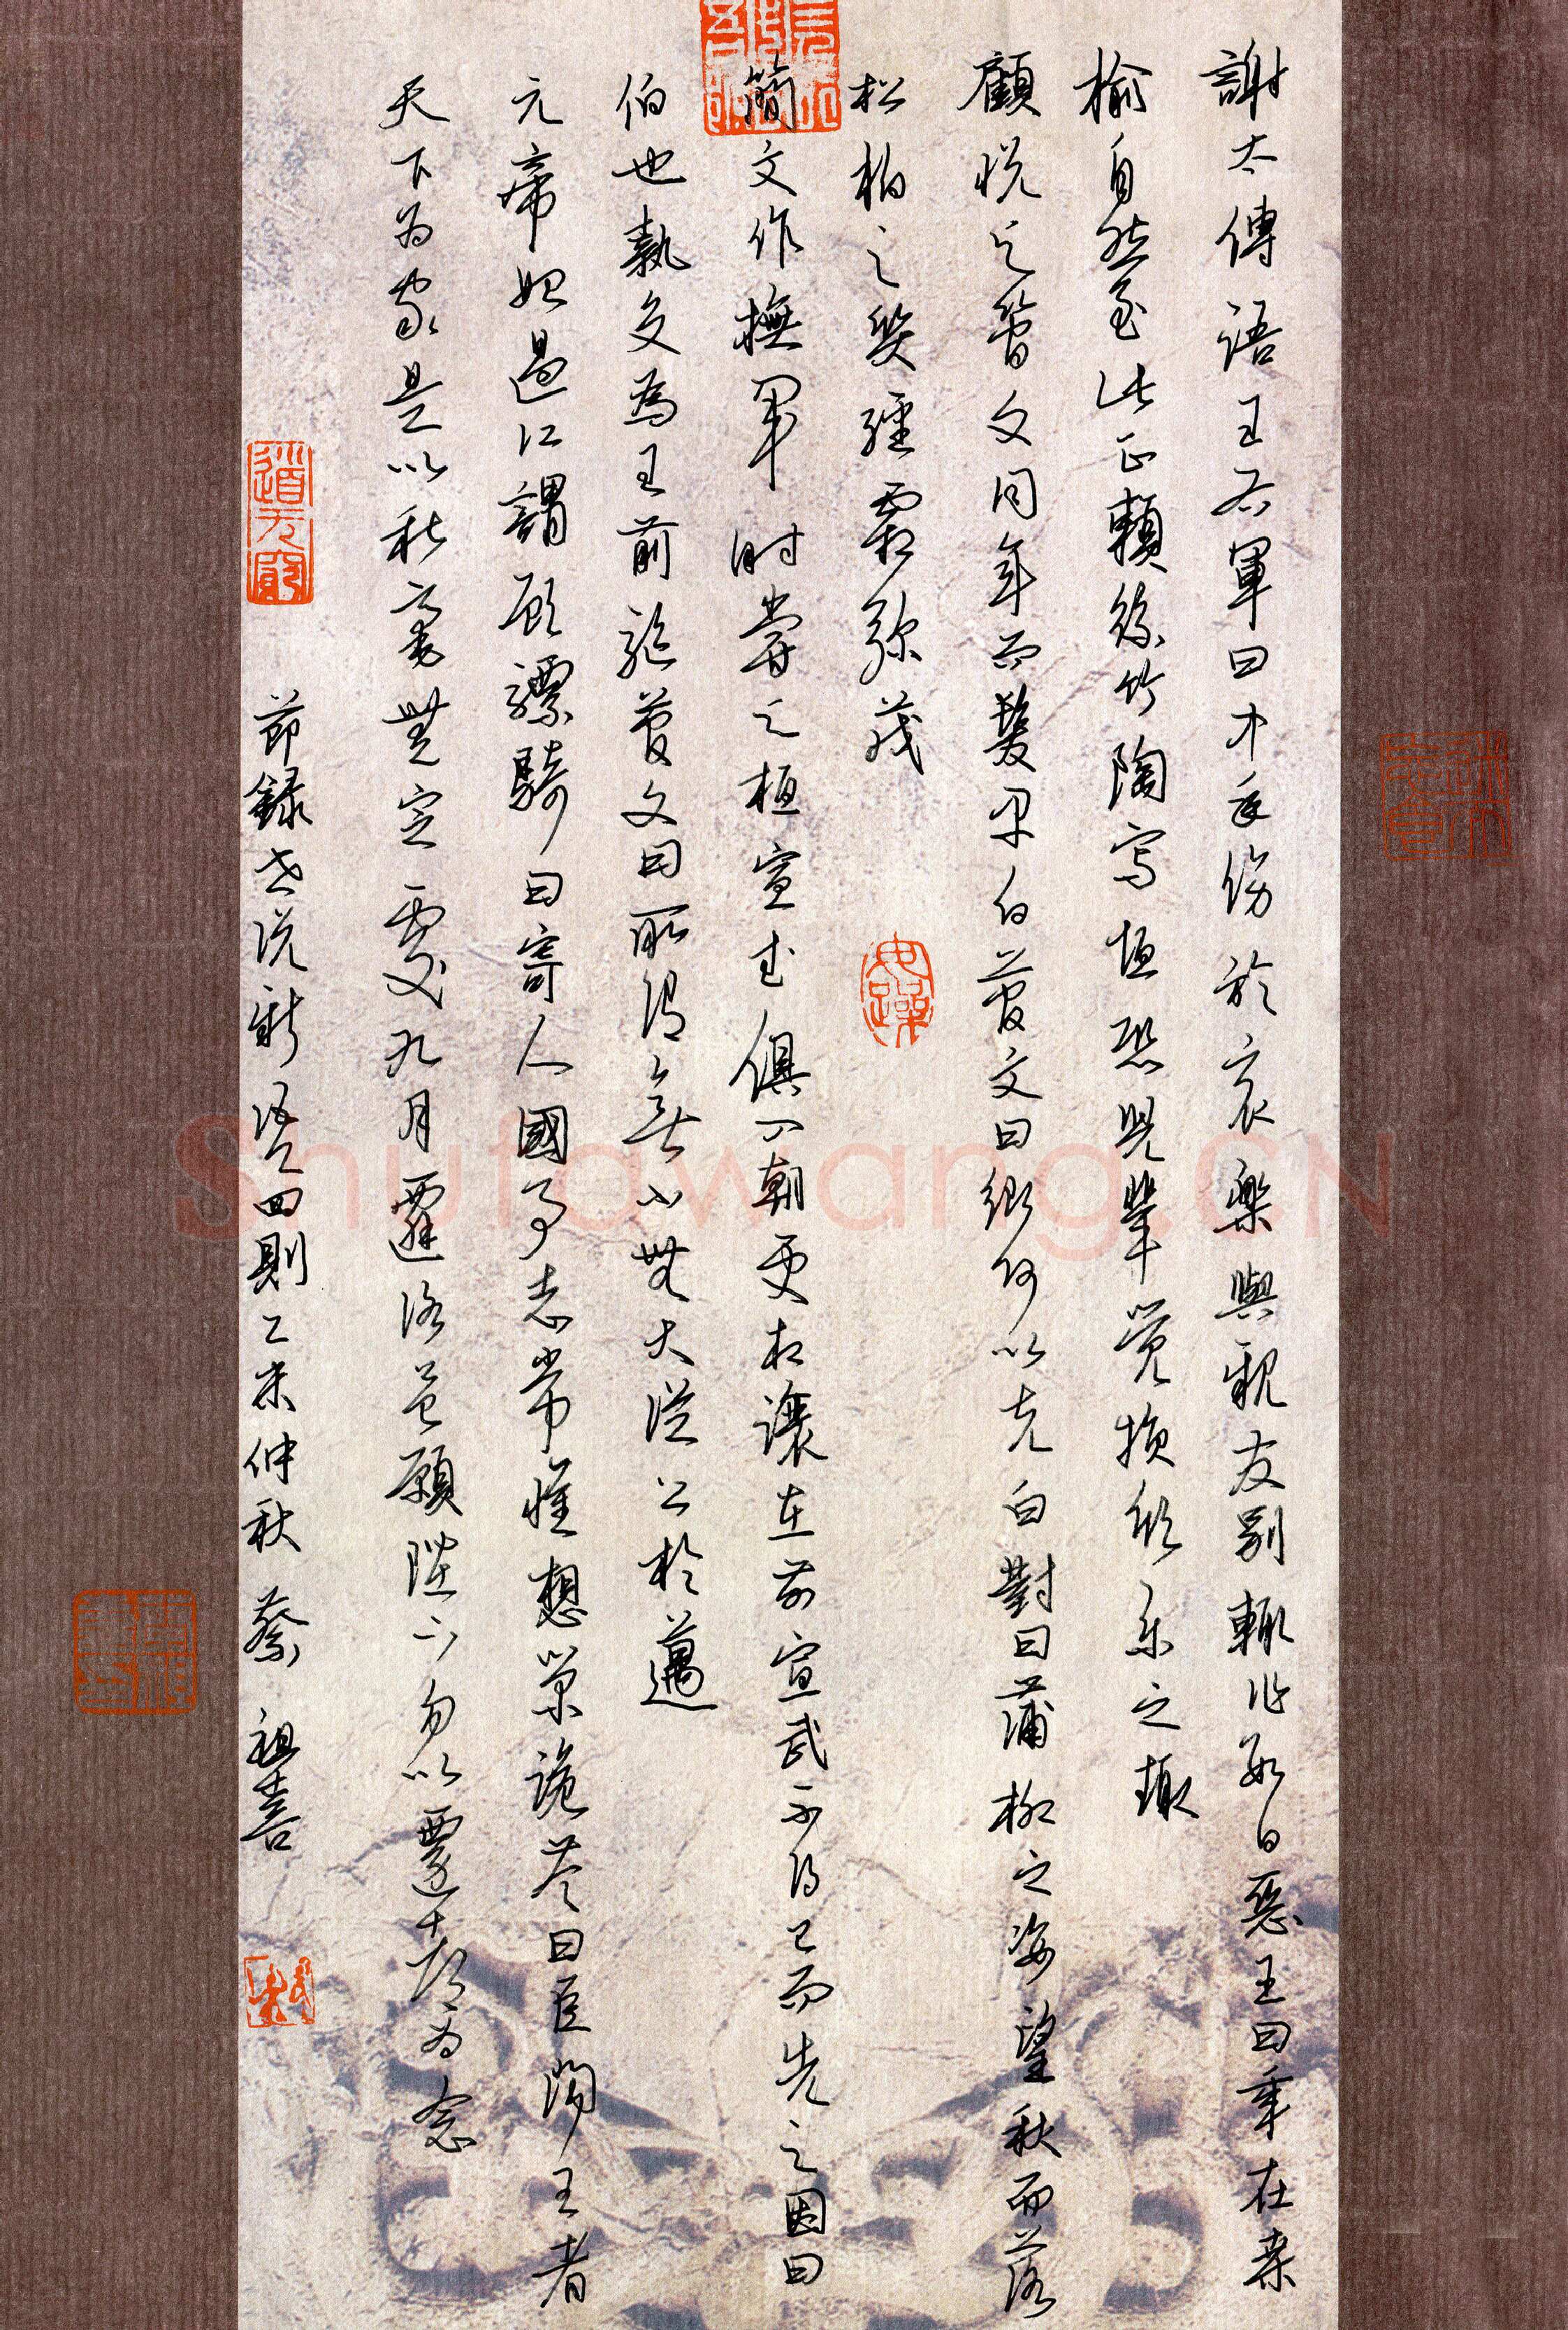 謝太傅語王右軍曰中年傷於哀樂與親友別輒作數日惡王曰年在桑
榆自然至此正賴絲竹陶寫恒恐兒輩覺損欣樂之趣
顧悅之簡文同年而髮早白簡文曰卿何以先白對曰蒲柳之姿望秋而落
松柏之質經霜弥茂
簡文作撫軍时嘗之桓宣武俱入朝更相讓在前宣武不得已而先之因曰
伯也執殳為王前驅簡文曰所谓無小無大從公於邁
元帝始過江謂顧驃騎曰寄人國事志常懷想榮詭答曰臣聞王者
天下为家是以耿亳無定處九月遷洛邑願陛下勿以遷都为念
節錄世说新语四則乙未仲秋蔡祖喜
道无窮
毋躁
Shufawang.CN